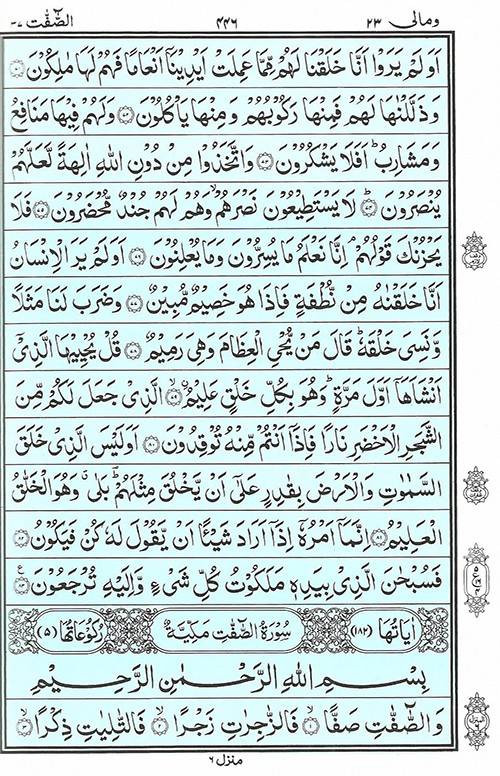 ومالى ٢٣ ٤٤٦ الصّٰٓفّٰت ٣٧
اَوَلَمْ يَرَوْا اَنَّا خَلَقْنَا لَهُمْ مِّمَّا عَمِلَتْ اَيْدِيْنَاۤ اَنْعَامًا فَهُمْ لَهَا مٰلِكُوْنَ ﴿٧١﴾
وَذَلَّلْنٰهَا لَهُمْ فَمِنْهَا رَكُوْبُهُمْ وَمِنْهَا يَاْكُلُوْنَ ﴿٧٢﴾ وَلَهُمْ فِيْهَا مَنَافِعُ
وَمَشَارِبُ ؕ اَفَلَا يَشْكُرُوْنَ ﴿٧٣﴾ وَاتَّخَذُوْا مِنْ دُوْنِ اللّٰهِ اٰلِهَةً لَّعَلَّهُمْ
يُنْصَرُوْنَ ﴿٧٤﴾ؕ لَا يَسْتَطِيْعُوْنَ نَصْرَهُمْ ۙ وَهُمْ لَهُمْ جُنْدٌ مُّحْضَرُوْنَ ﴿٧٥﴾ فَلَا
يَحْزُنْكَ قَوْلُهُمْ ۘ اِنَّا نَعْلَمُ مَا يُسِرُّوْنَ وَمَا يُعْلِنُوْنَ ﴿٧٦﴾ اَوَلَمْ يَرَ الْاِنْسَانُ
اَنَّا خَلَقْنٰهُ مِنْ نُّطْفَةٍ فَاِذَا هُوَ خَصِيْمٌ مُّبِيْنٌ ﴿٧٧﴾ وَضَرَبَ لَنَا مَثَلًا
وَّنَسِىَ خَلْقَهٗ ؕ قَالَ مَنْ يُّحْىِ الْعِظَامَ وَهِىَ رَمِيْمٌ ﴿٧٨﴾ قُلْ يُحْيِيْهَا الَّذِىْۤ
اَنْشَاَهَاۤ اَوَّلَ مَرَّةٍ ؕ وَهُوَ بِكُلِّ خَلْقٍ عَلِيْمٌ ۙ﴿٧٩﴾ الَّذِىْ جَعَلَ لَكُمْ مِّنَ
الشَّجَرِ الْاَخْضَرِ نَارًا فَاِذَاۤ اَنْتُمْ مِّنْهُ تُوْقِدُوْنَ ﴿٨٠﴾ اَوَلَيْسَ الَّذِىْ خَلَقَ
السَّمٰوٰتِ وَالْاَرْضَ بِقٰدِرٍ عَلٰۤى اَنْ يَّخْلُقَ مِثْلَهُمْ ؕ بَلٰى ۗ وَهُوَ الْخَلّٰقُ
الْعَلِيْمُ ﴿٨١﴾ اِنَّمَاۤ اَمْرُهٗۤ اِذَاۤ اَرَادَ شَيْئًا اَنْ يَّقُوْلَ لَهٗ كُنْ فَيَكُوْنُ ﴿٨٢﴾
فَسُبْحٰنَ الَّذِىْ بِيَدِهٖ مَلَكُوْتُ كُلِّ شَىْءٍ وَّاِلَيْهِ تُرْجَعُوْنَ ﴿٨٣﴾ ع
اٰيَاتُهَا (١٨٢) سُوْرَةُ الصّٰٓفّٰتِ مَكِّيَّةٌ رُكُوْعَاتُهَا (٥)
بِسْمِ اللّٰهِ الرَّحْمٰنِ الرَّحِيْمِ
وَالصّٰٓفّٰتِ صَفًّا ۙ﴿١﴾ فَالزّٰجِرٰتِ زَجْرًا ۙ﴿٢﴾ فَالتّٰلِيٰتِ ذِكْرًا ۙ﴿٣﴾
منزل ٦